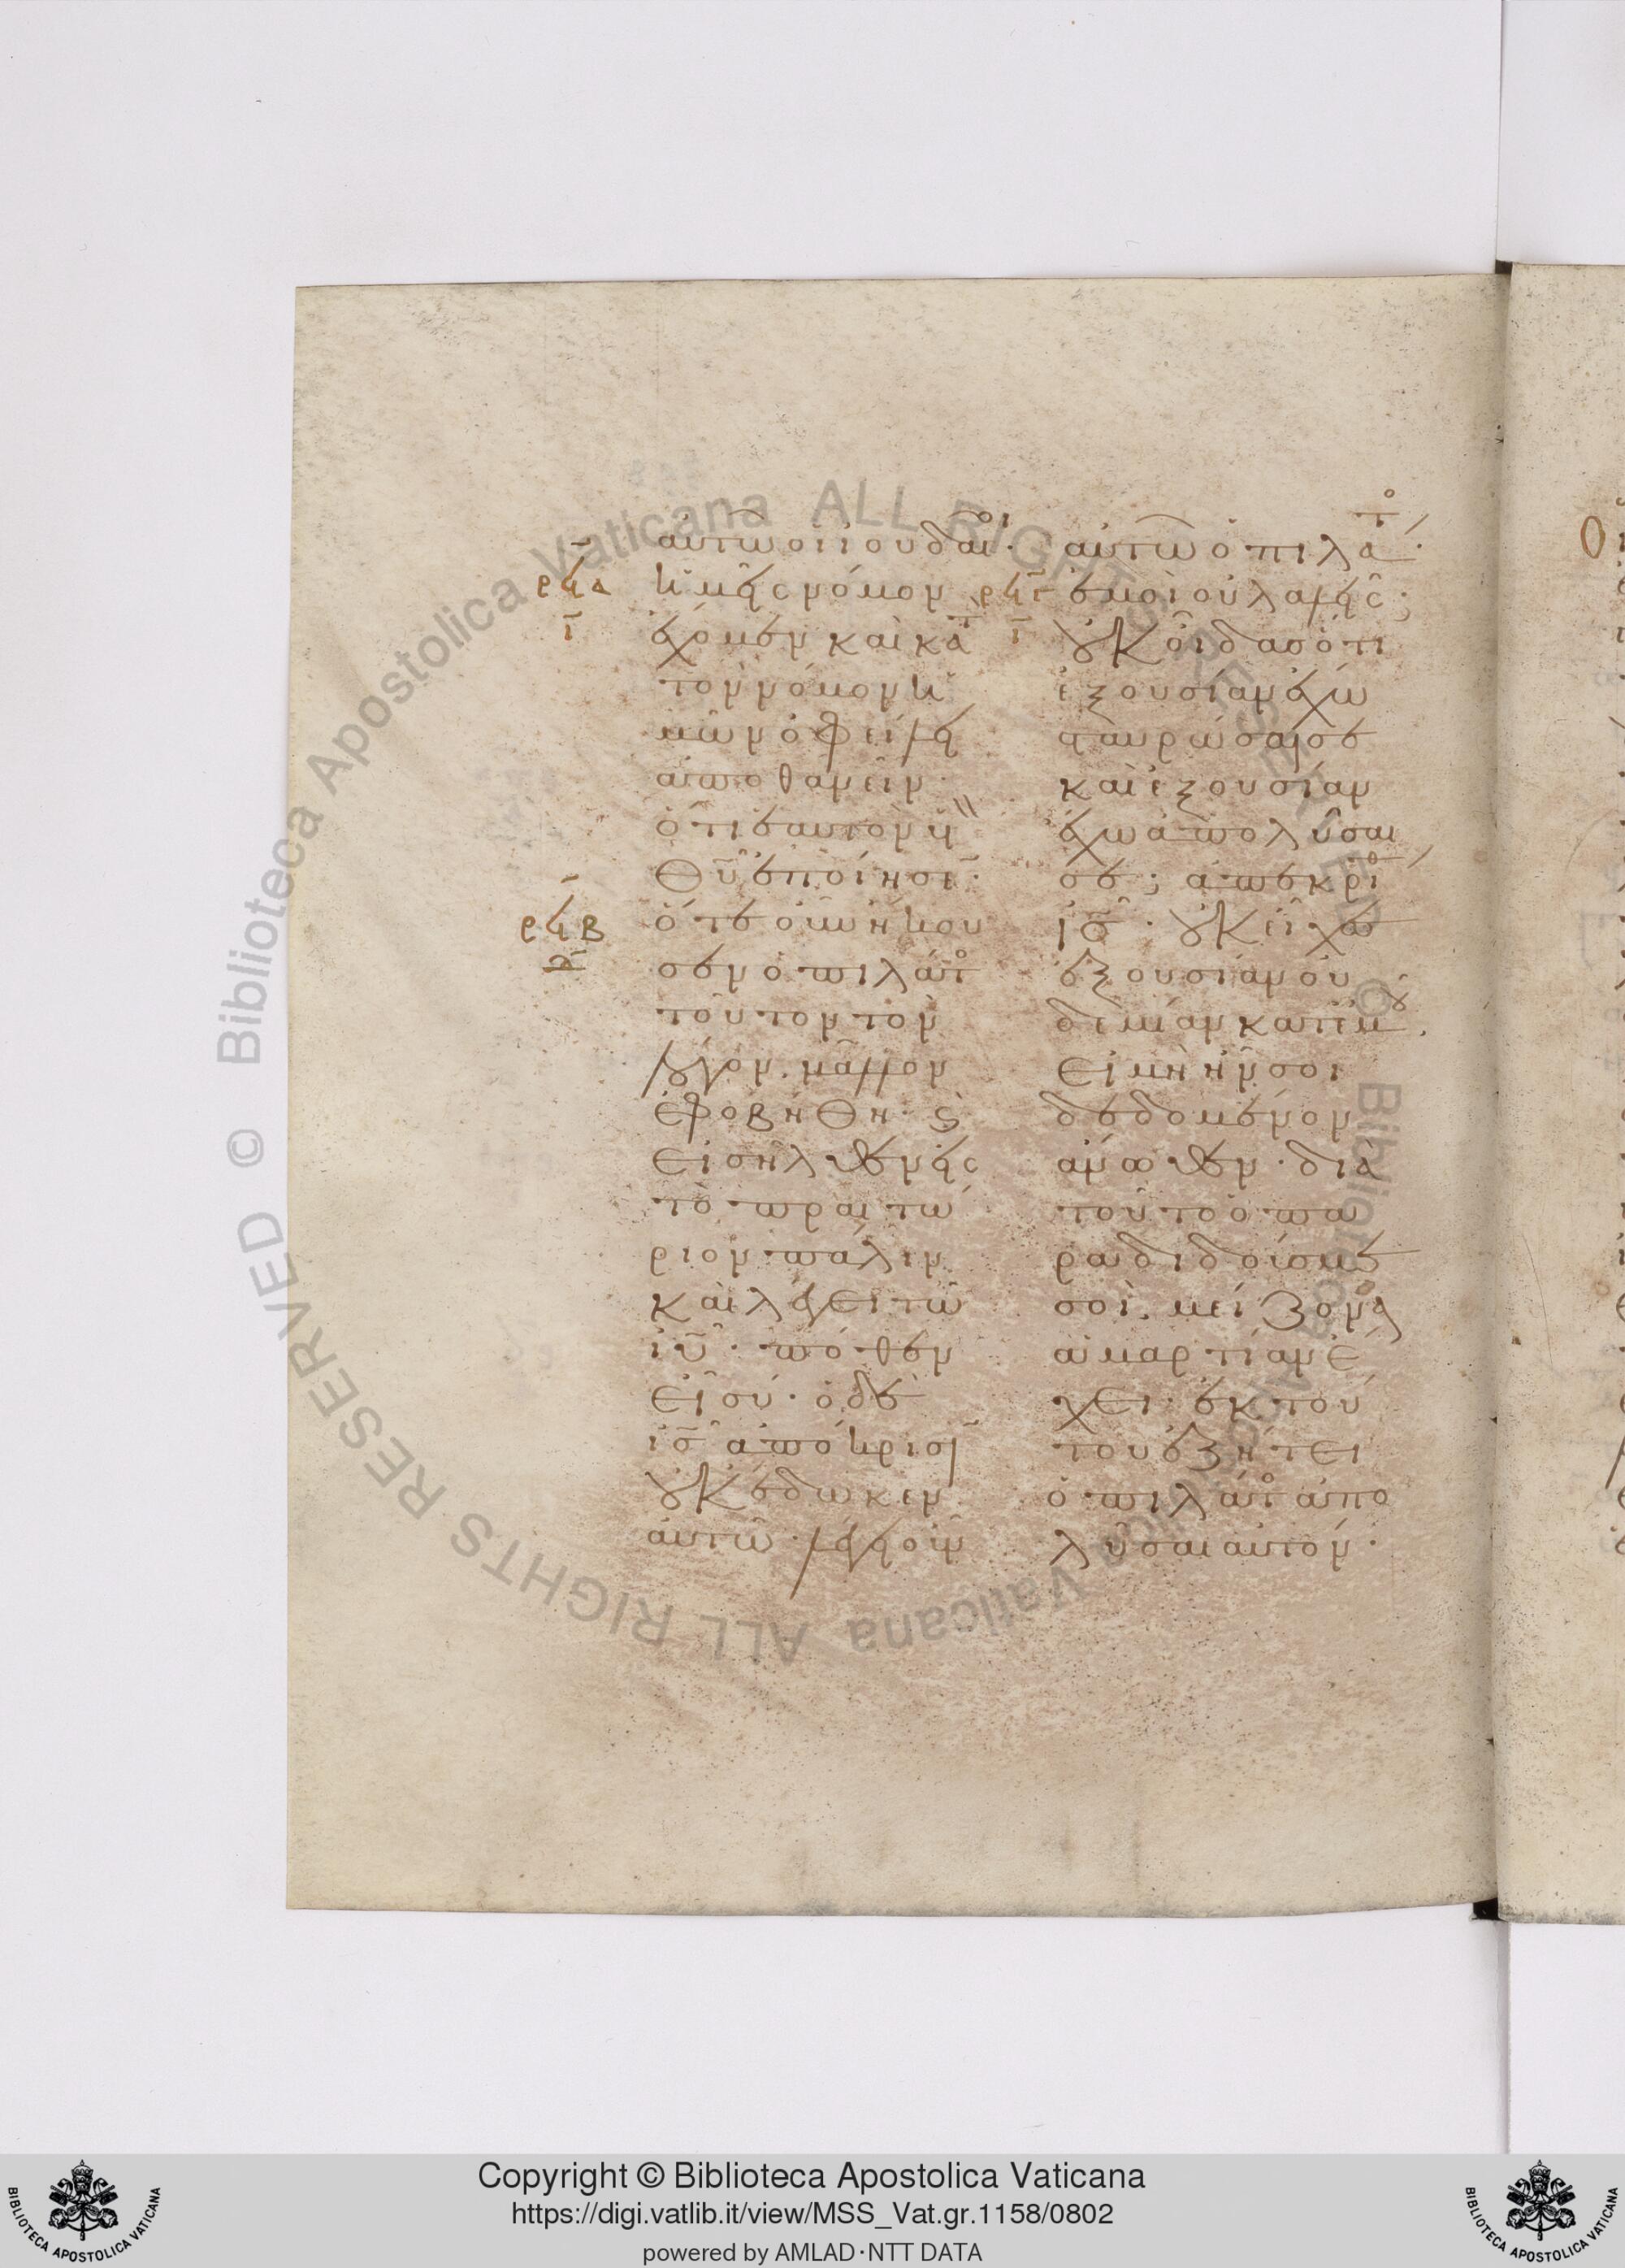 αὐτῶ οἱ ἰουδαῖοι·
ρϟα
ι
ἡμεῖς νόμον
ἔχομεν καὶ κατὰ
τὸν νόμον ἡ
μῶν ὀφείλει
ἀποθανεῖν·
ὅτι ἑαυτὸν υἱὸν
θυ ἐποίησεν·
ρϟβ
ὅτε οὖν ἤκου
σεν ὁ πιλάτος
τοῦτον τὸν
λόγον. μᾶλλον
ἐφοβήθη· καὶ
εἰσῆλθεν εἰς
τὸ πραιτώ
ριον πάλιν
καὶ λέγει τῶ
ιυ· πόθεν
εἶ σύ· ὁ δὲ
ις ἀπόκρισιν
οὐκ ἔδωκεν
αὐτῶ· λέγει οὖν
αὐτῶ ὁ πιλάτος·
ι
ἐμοὶ οὐ λαλεῖς;
οὐκ οἶδας ὅτι
ἐξουσίαν ἔχω
σταυρῶσαί σε
καὶ ἐξουσίαν
ἔχω ἀπολῦσαι
σε; ἀπεκρίθη
ις· οὐκ εἶχες
ἐξουσίαν οὐ
δεμίαν κατ' ἐμοῦ,
εἰ μὴ ἦν σοι
δεδομένον
ἄνωθεν· διὰ
τοῦτο ὁ πα
ραδιδούς με
σοι. μείζονα
ἁμαρτίαν ἔ
χει· ἐκ τού
του ἐζήτει
ὁ πιλάτος ἀπο
λῦσαι αὐτόν·
© Biblioteca Apostolica Vaticana ALL RIGHTS RESERVED © Biblioteca Apostolica Vaticana ALL RIGHTS RESERVED
BIBLIOTECA APOSTOLICA VATICANA
Copyright © Biblioteca Apostolica Vaticana
https://digi.vatlib.it/view/MSS_Vat.gr.1158/0802
powered by AMLAD·NTT DATA
BIBLIOTECA APOSTOLICA VATICANA